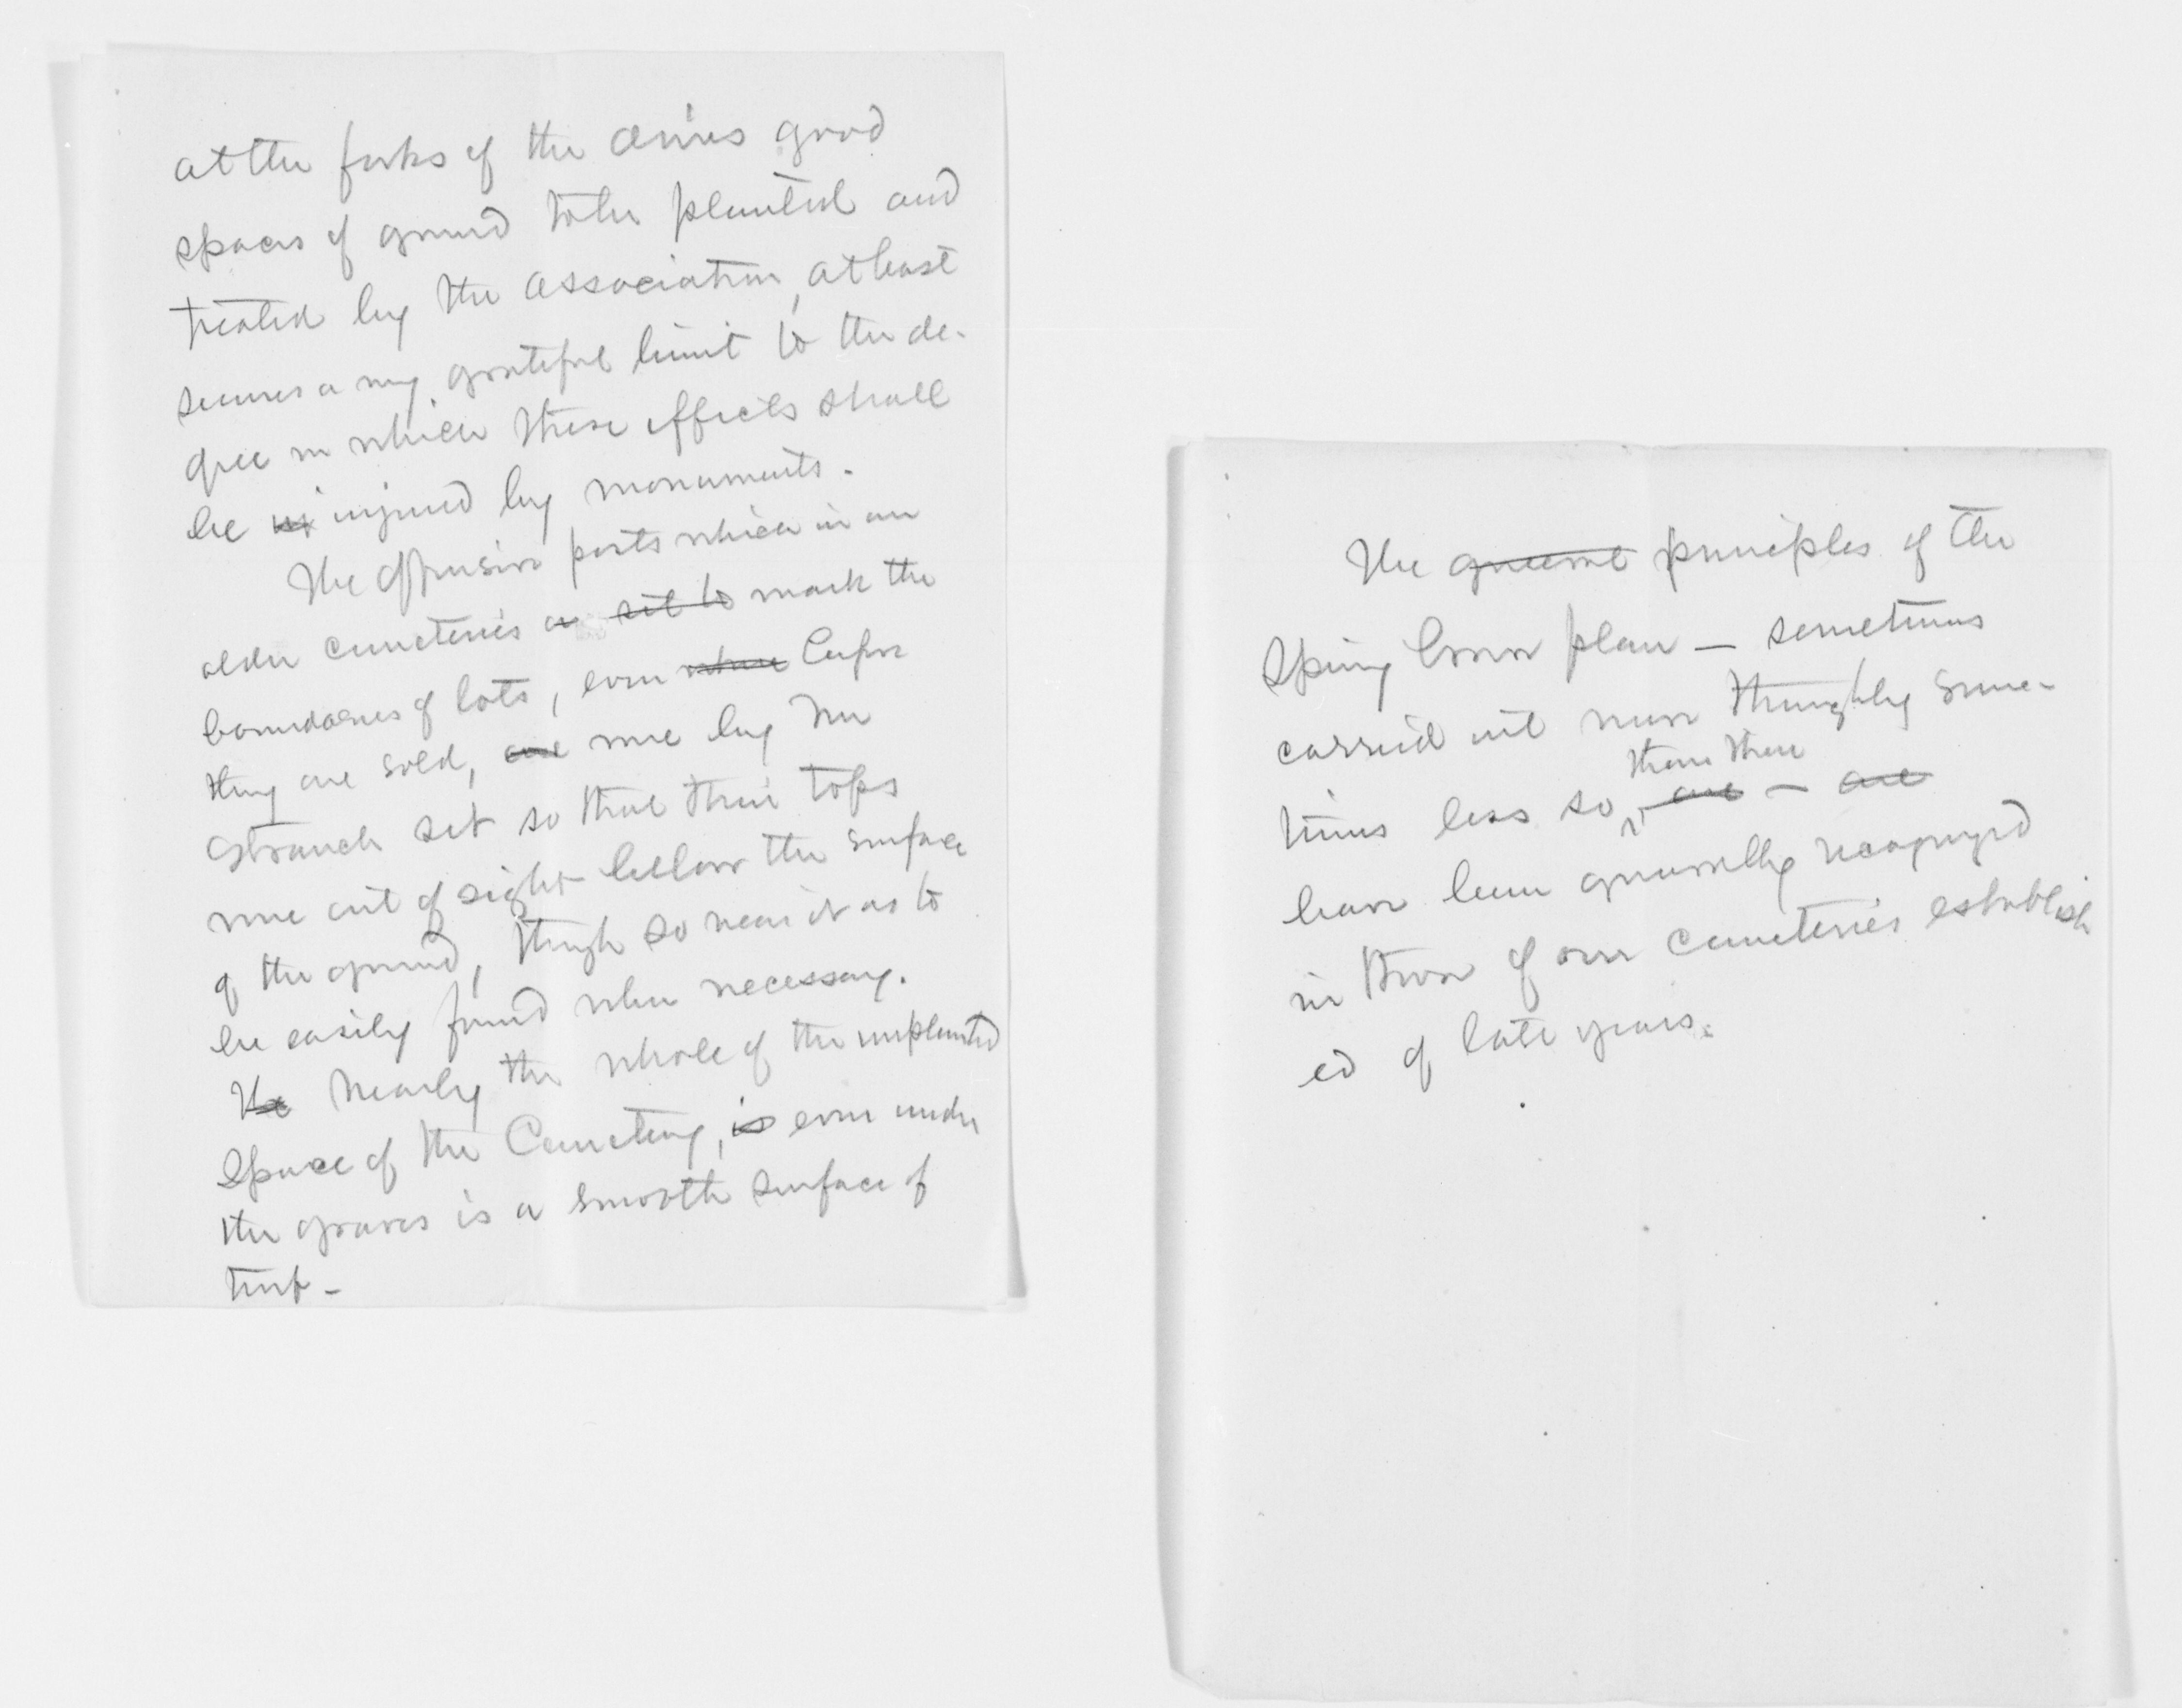 at the forks of the drives good
spaces of ground to be planted and
treated by the association, at least
secures a very grateful limit to the de-
gree in which these effects shall
be in injured by monuments.
The offensive posts which in our
older cemeteries are set to mark the
boundaries of lots, even where before
they are sold, are were by Mr
Strauch set so that their tops
were out of sight bellow the surface
of the ground, though so near it as to
be easily found when necessary.
The Nearly the whole of the unplanted
space of the Cemetery, is even under
the graves is a smooth surface of
turf -
The general principles of the
Spring Grove plan — sometimes
carried out more thoroughly some-
than there
times less so, are — are
have been generally recognized
in those of our cemeteries establish
ed of late years.